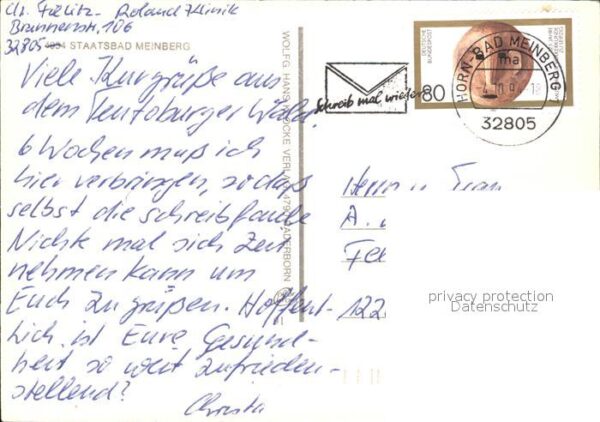 Roland Klinik
Brunnenstr. 106
32805 4934 STAATSBAD MEINBERG
Viele Kurgrüße aus
dem Teutoburger Wald.
6 Wochen muß ich
hier verbringen, so daß
selbst die schreibfaule
Nichte mal sich Zeit
nehmen kann um
Euch zu grüßen. Hoffent-
lich ist Eure Gesund-
heit so weit zufrieden-
stellend?
Christa
WOLFG. HANS VERLAG PADERBORN
Schreib mal wieder
DEUTSCHE
BUNDESPOST
80
HORN-BAD MEINBERG 1
ma
32805
Herrn u. Frau
A.
122
privacy protection
Datenschutz